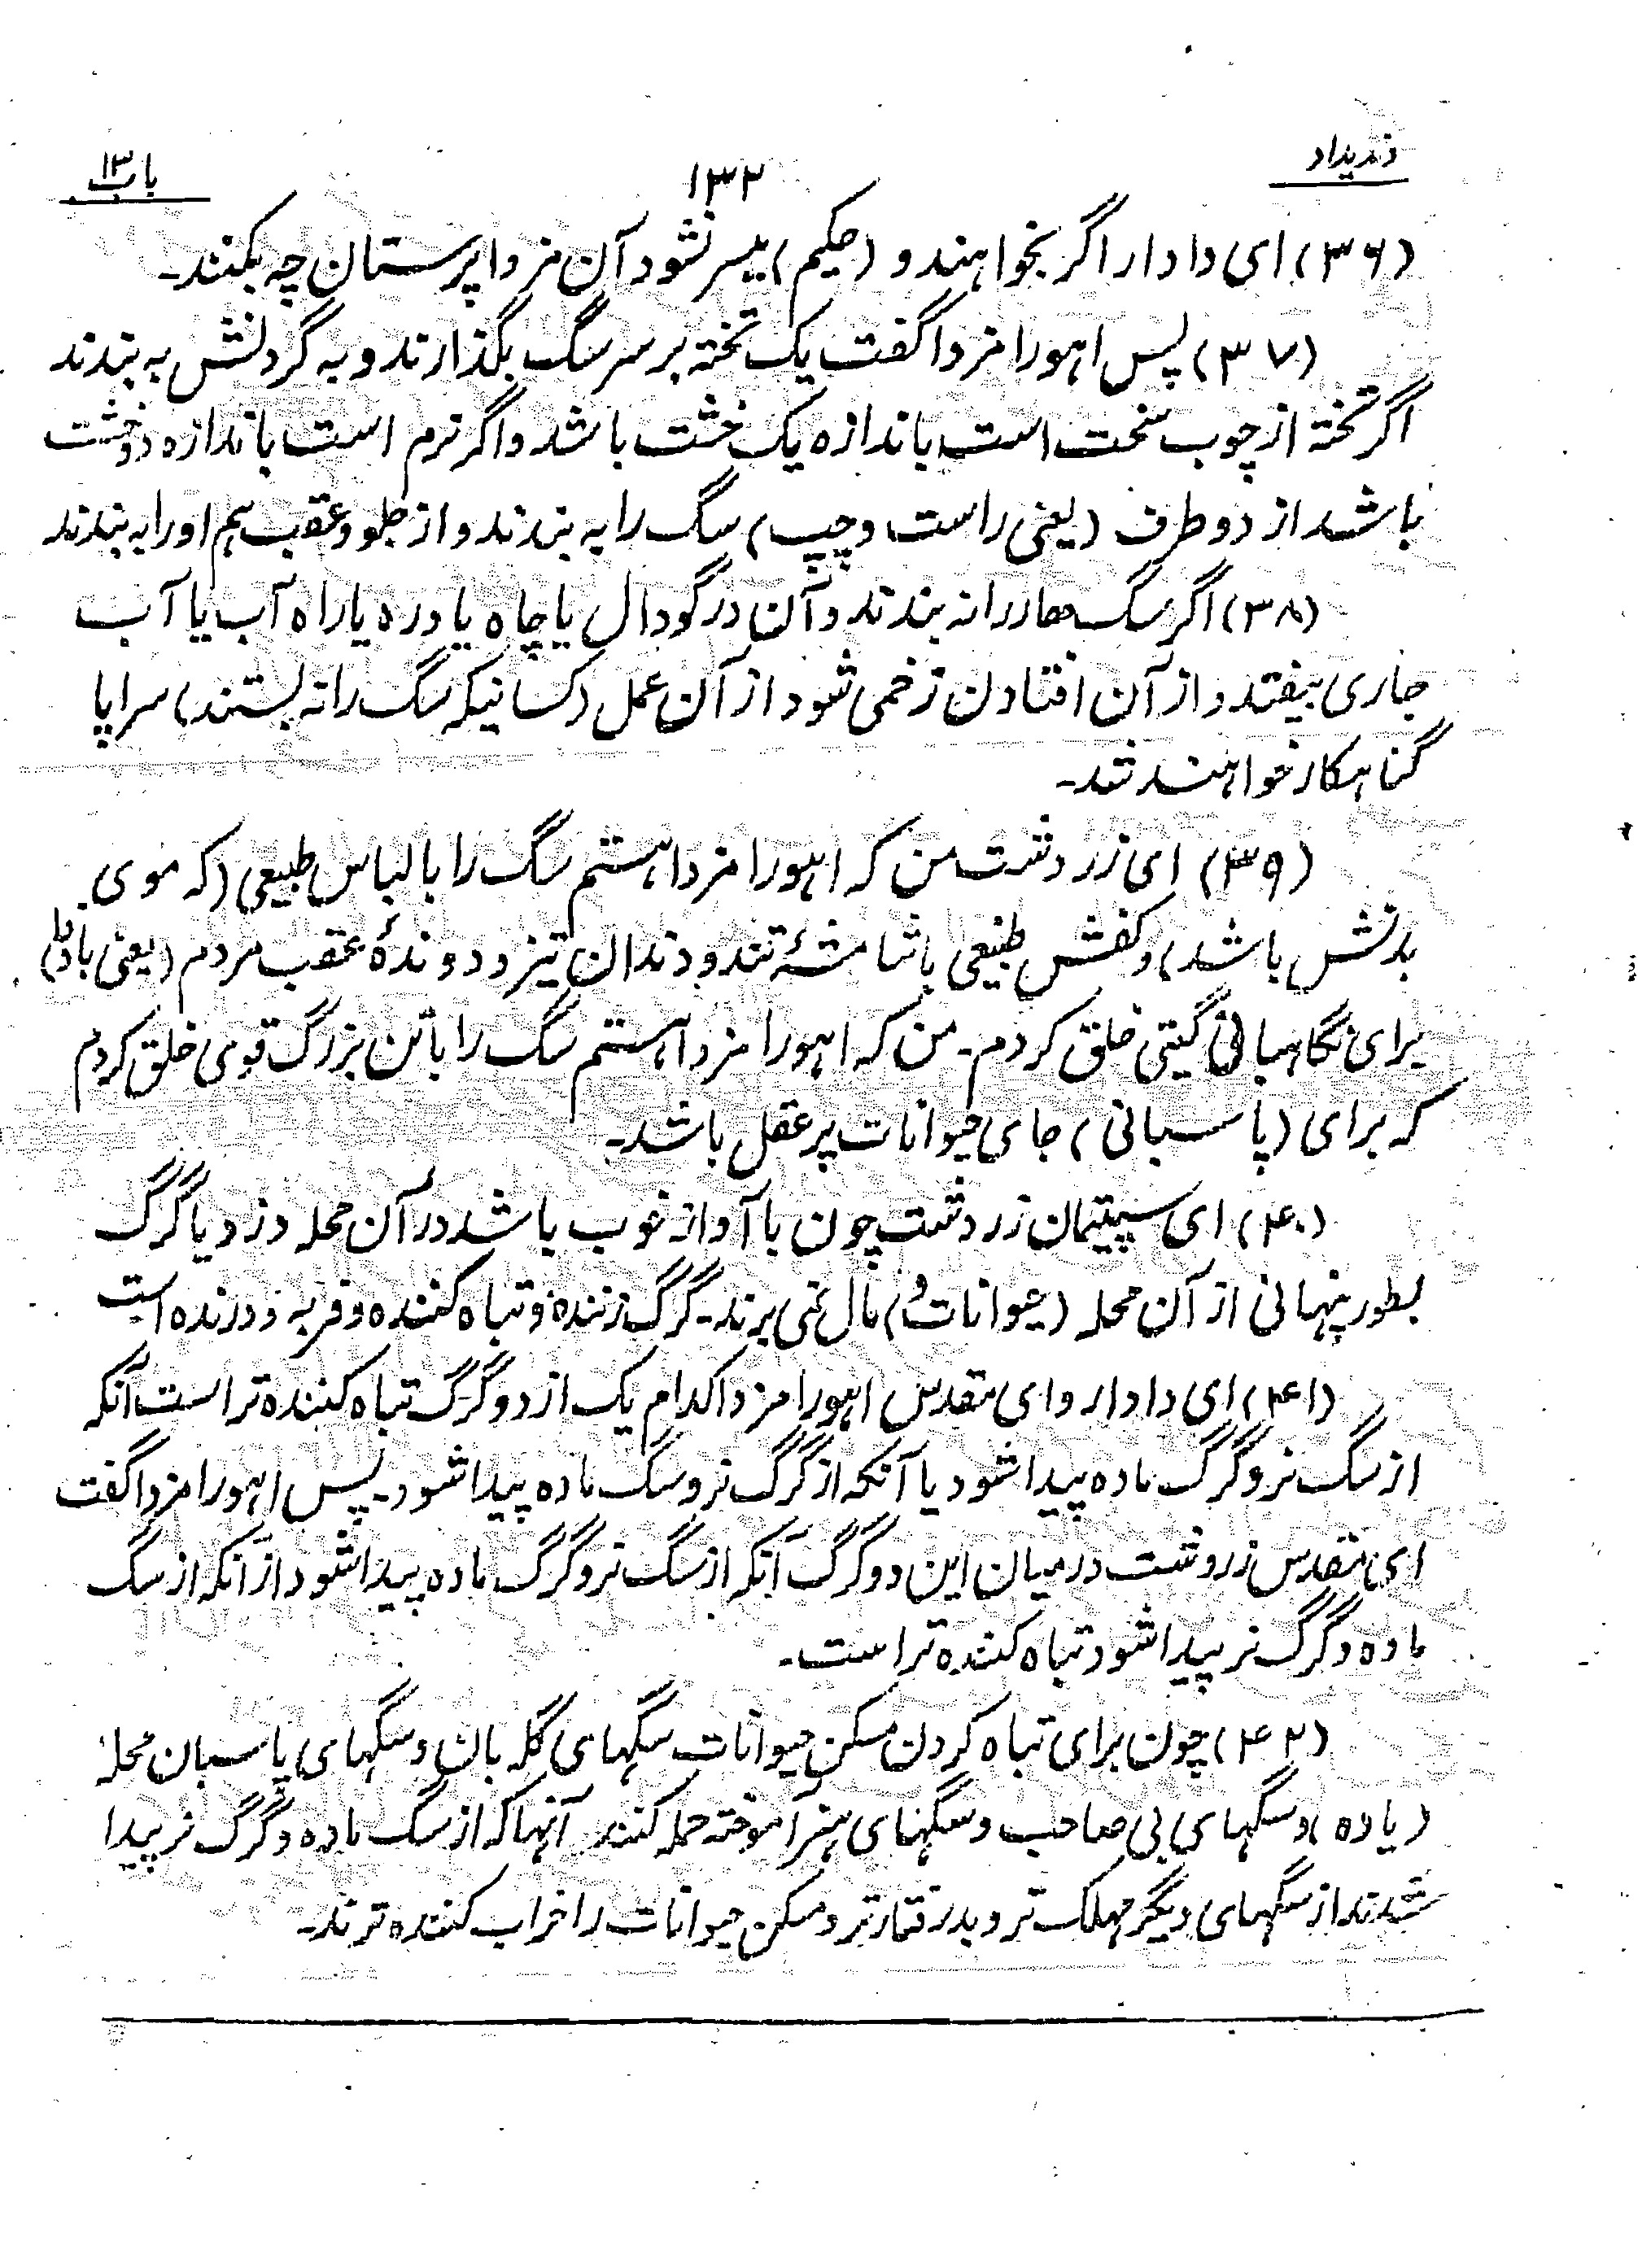 وندیداد
۱۳۲
باب ۱۳
(۳۶) ای دادار اگر بخواهند و (حکیم) میسر نشود آن مزداپرستان چه بکنند۔
(۳۷) پس اهورا مزدا گفت یک تخته بر سر سگ بگذارند و به گردنش به بندند
اگر تخته از چوب سخت است باندازه یک خشت باشد و اگر نرم است باندازه دو خشت
باشد از دو طرف (یعنی راست و چپ) سگ را به بندند و از جلو و عقب هم او را به بندند
(۳۸) اگر سگ را نه بندند و آن در گودال یا چاه یا دره یا راه آب یا آب
جاری بیفتد و از آن افتادن زخمی شود از آن عمل (کسانیکه سگ را نه بستند) سراپا
گناهکار خواهند شد۔
(۳۹) ای زردشت من که اهورا مزدا هستم سگ را با لباس طبیعی (که موی
بدنش باشد) و کفش طبیعی با شامهٔ تند و دندان تیز و دوندهٔ عقب مردم (یعنی باوفا)
برای نگاهبانی گیتی خلق کردم۔ من که اهورا مزدا هستم سگ را با تن بزرگ قوی خلق کردم
که برای (پاسبانی) جای حیوانات پر عقل باشد۔
(۴۰) ای سپیتمان زردشت چون با آواز خوب باشد در آن محله دزد یا گرگ
بطور پنهانی از آن محله (حیوانات و) مال نمی برند۔ گرگ زننده و تباه کننده و فربه و درنده است
(۴۱) ای دادار و ای مقدس اهورا مزدا کدام یک از دو گرگ تباه کننده تر است آنکه
از سگ نر و گرگ ماده پیدا شود یا آنکه از گرگ نر و سگ ماده پیدا شود۔ پس اهورا مزدا گفت
ای مقدس زردشت در میان این دو گرگ آنکه از سگ نر و گرگ ماده پیدا شود از آنکه از سگ
ماده و گرگ نر پیدا شود تباه کننده تر است۔
(۴۲) چون برای تباه کردن مسکن حیوانات سگهای گله بان و سگهای پاسبان محله
(یا ده) و سگهای بی صاحب و سگهای هنر آموخته حمله کنند آنها که از سگ ماده و گرگ نر پیدا
شدند از سگهای دیگر مهلک تر و بدرفتارتر و مسکن حیوانات را خراب کننده ترند۔